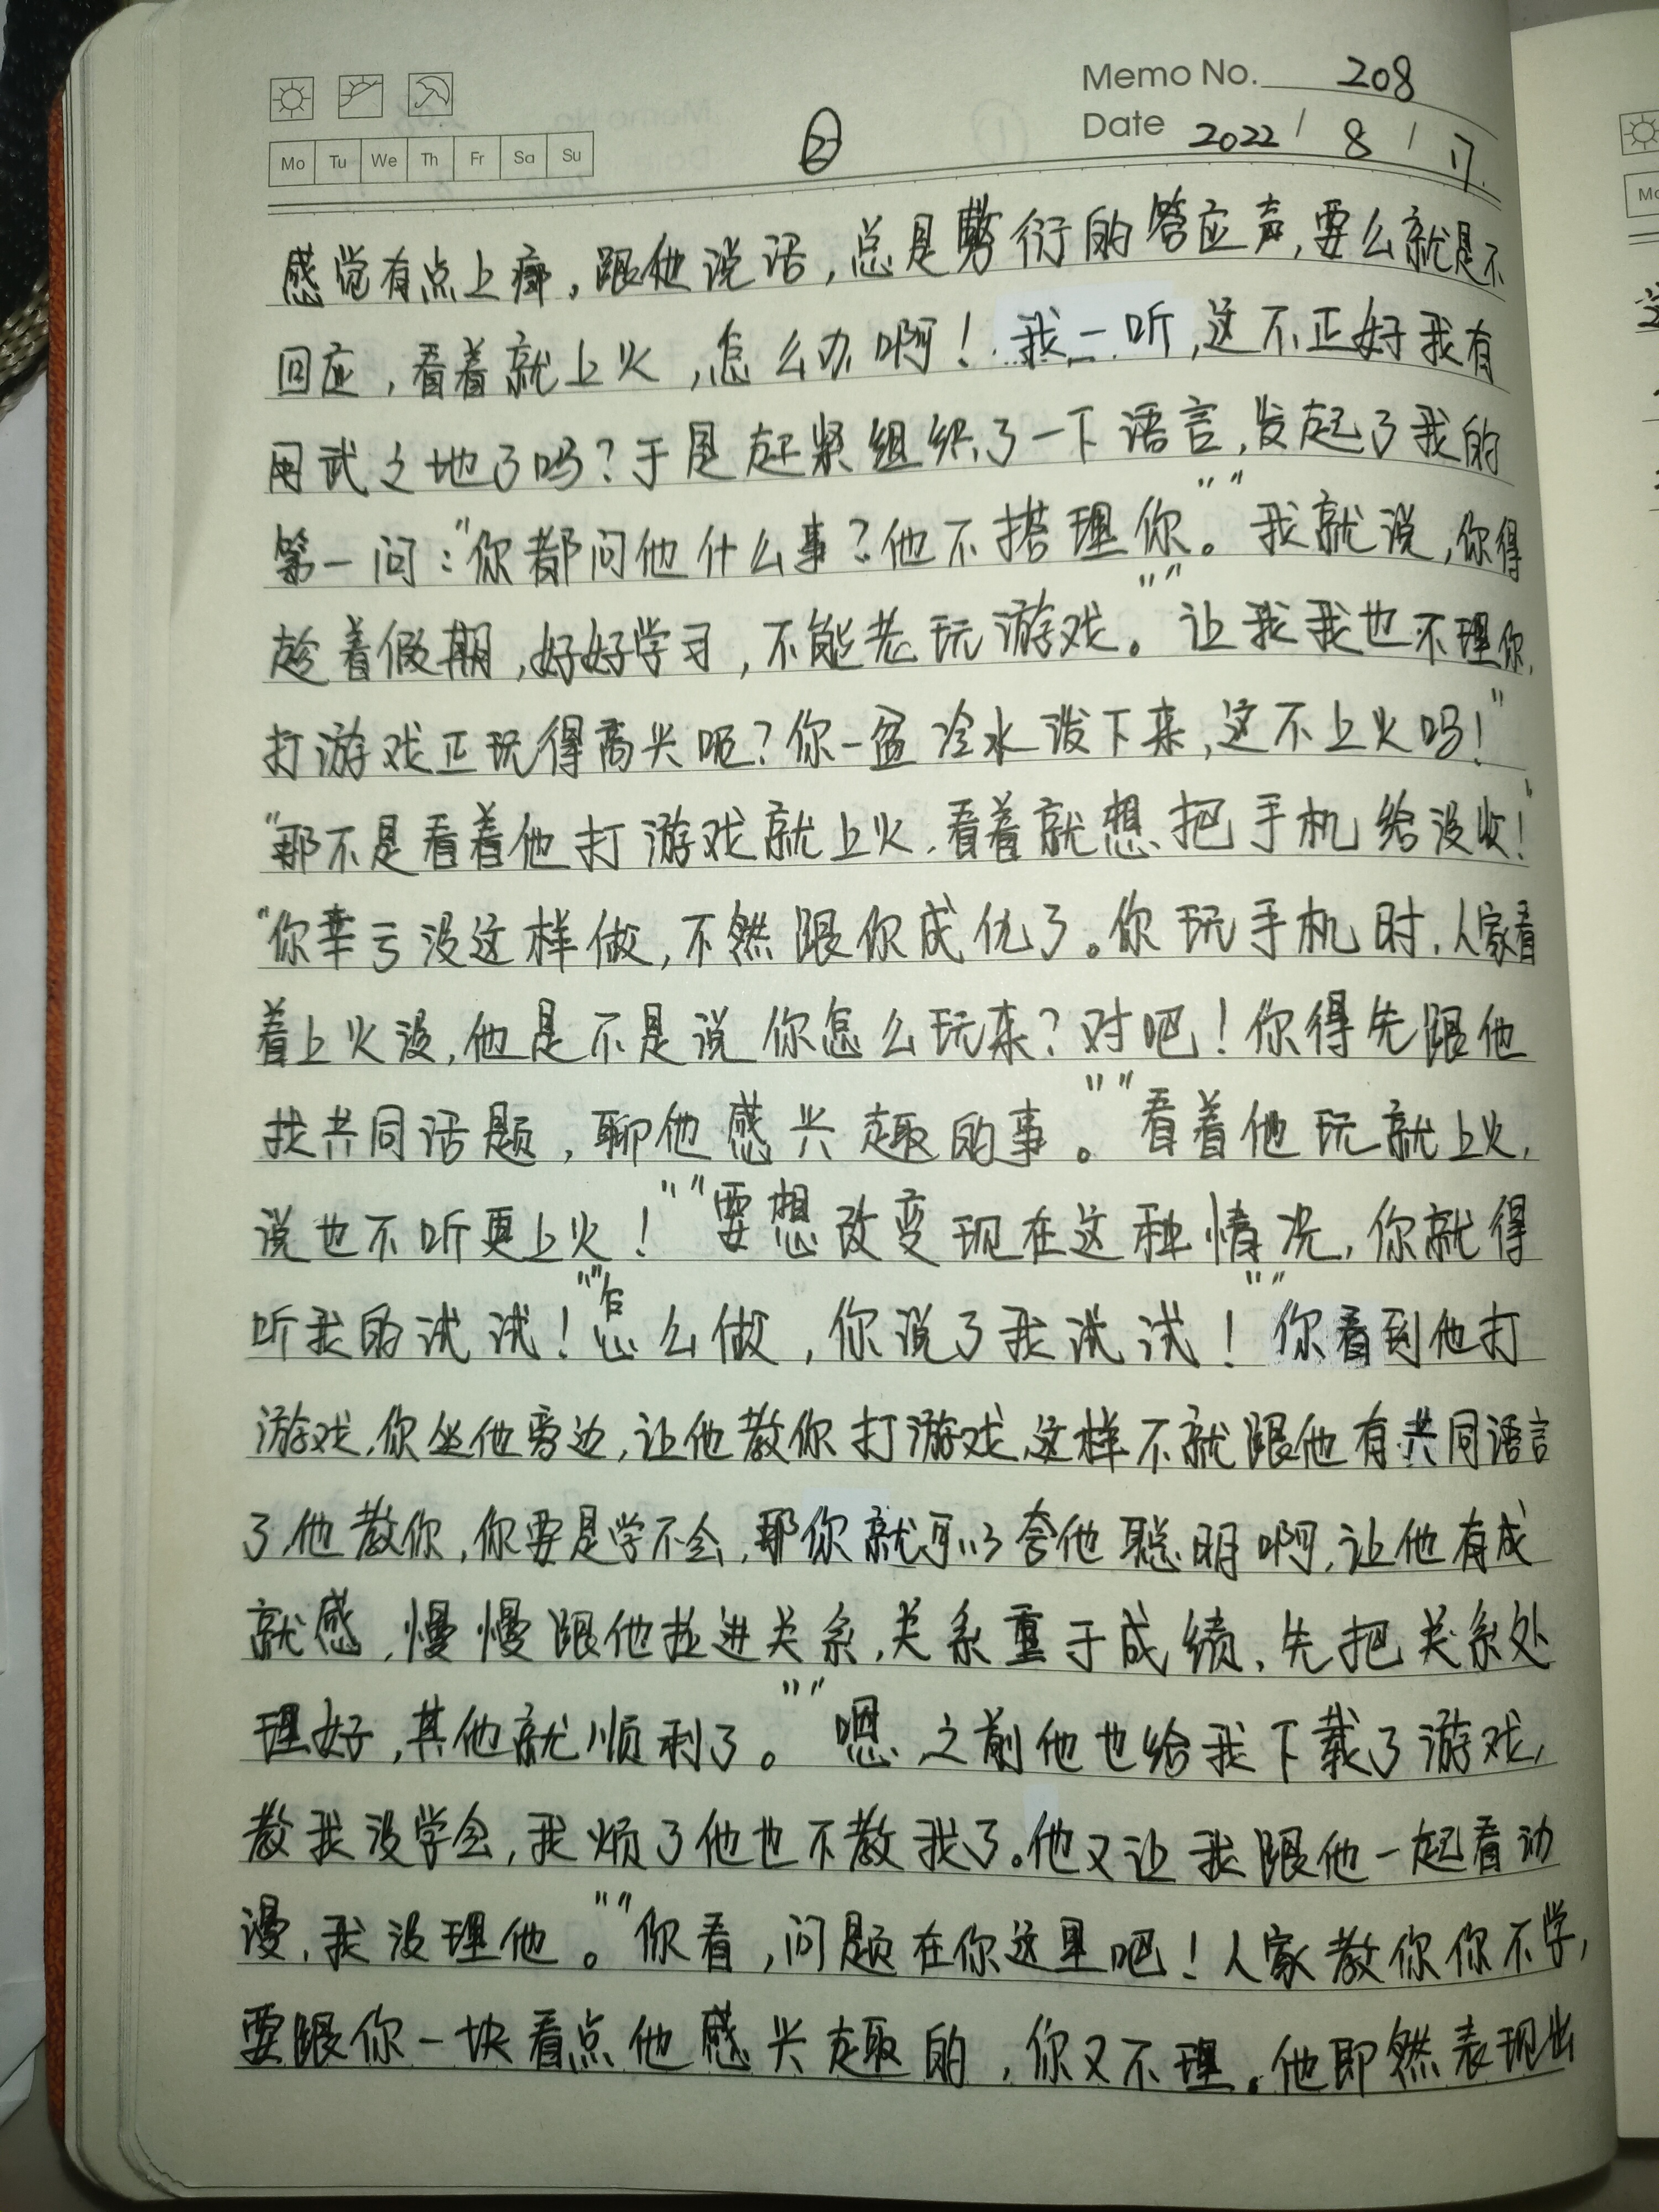 Memo No. 208
Mo Tu We Th Fr Sa Su
②
Date 2022 / 8 / 17.
感觉有点上瘾。跟他说话,总是敷衍的答应声,要么就是不
回应,看着就上火,怎么办啊!我一听,这不正好我有
用武之地了吗?于是赶紧组织了一下语言,发起了我的
第一问:“你都问他什么事?他不搭理你。”“我就说,你得
趁着假期,好好学习,不能老玩游戏。”“让我我也不理你,
打游戏正玩得高兴呢?你一盆冷水泼下来,这不上火吗!”
“那不是看着他打游戏就上火,看着就想把手机给没收!”
“你幸亏没这样做,不然跟你成仇了。你玩手机时,人家看
着上火没,他是不是说你怎么玩来?对吧!你得先跟他
找共同话题,聊他感兴趣的事。”“看着他玩就上火,
说也不听更上火!”“要想改变现在这种情况,你就得
听我的试试!”“怎么做,你说了我试试!”“你看到他打
游戏,你坐他旁边,让他教你打游戏,这样不就跟他有共同语言
了,他教你,你要是学不会,那你就可以夸他聪明啊,让他有成
就感,慢慢跟他拉进关系,关系重于成绩,先把关系处
理好,其他就顺利了。”“嗯,之前他也给我下载了游戏,
教我没学会,我烦了他也不教我了。他又让我跟他一起看动
漫,我没理他。”“你看,问题在你这里吧!人家教你你不学,
要跟你一块看点他感兴趣的,你又不理。他即然表现出